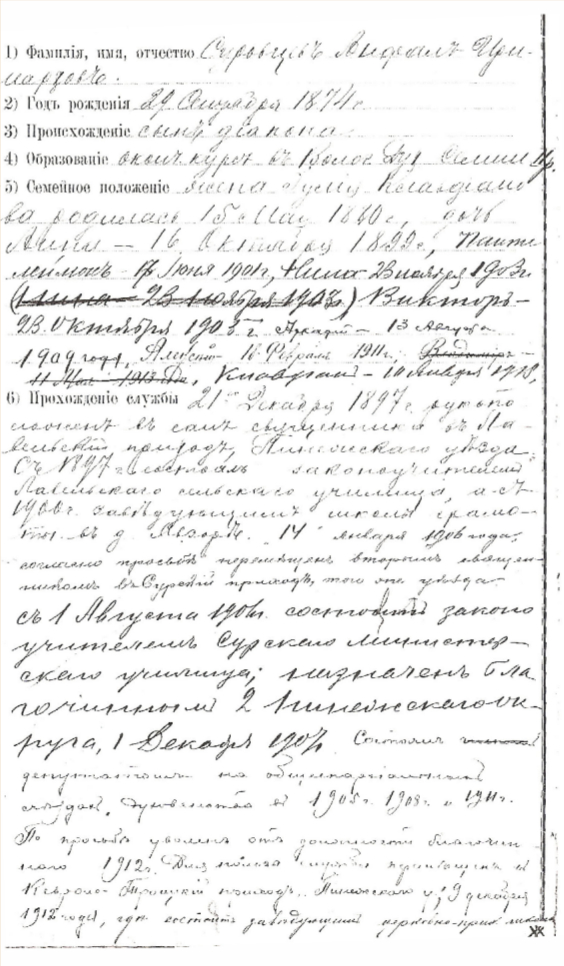 1) Фамилія, имя, отчество Суровцевъ Анфалъ
2) Годъ рожденія 29 1874 г
3) Происхожденіе сынъ діакона
4) Образованіе оконч. курсъ въ Волог. Дух. Семин
5) Семейное положеніе жена Юлія
ва родилась 15 Мая 1880 г, дочь
— 16 Октября 1899 г,
— Іюня 1901 г, Нина 23 ноября 1903 г
(Нина — 23 ноября 1903 г) Викторъ —
23 Октября г. Аркадій — 13 Августа
1909 года, Алексѣй 16 Февраля 1911 г; Владиміръ —
11 Мая 1913 — 10 Января 1918,
6) Прохожденіе службы 21го Декабря 1897 г. рукопо
ложенъ въ санъ священника въ Ла-
вельскій приходъ, Пинежскаго уѣзда.
Съ 1897 г. состоялъ законоучителемъ
Лавельскаго сельскаго училища, а съ
1900 г. завѣдующимъ школы грамо-
ты въ д. 14 января 1906 года,
согласно просьбѣ перемѣщенъ вторымъ священ-
никомъ въ Сурскій приходъ, того же уѣзда
съ 1 Августа состоитъ законо
учителемъ Сурскаго Министер-
скаго училища; назначенъ бла
гочиннымъ 2 Пинежскаго ок-
руга, 1 Декабря Состоялъ
депутатомъ на общеепархіальныхъ
съѣздахъ духовенства въ 1905 г. 1908 г. и 1911 г.
По просьбѣ уволенъ отъ должности благочин
наго 1912 г. Для пользы службы перемѣщенъ въ
Кеврово-Троицкій приходъ Пинежскаго у; 9 декабря
1912 года, гдѣ состоитъ завѣдующимъ церковно-прих. школы